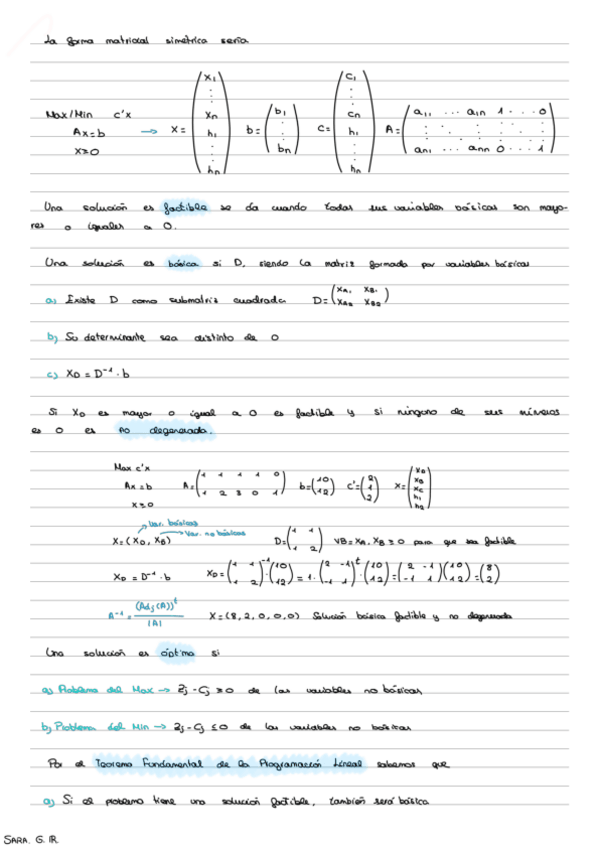 La forma matricial simétrica sería
Max/Min c'x
Ax=b
x≥0
→ X = (x₁ : xn h₁ : hn) b = (b₁ : bn) c = (c₁ : cn h₁ : hn) A = (a₁₁ ... a₁n 1 ... 0 : an₁ ... ann 0 ... 1)
Una solución es factible se da cuando todas sus variables básicas son mayo-
res o iguales a 0.
Una solución es básica si D, siendo la matriz formada por variables básicas
a) Existe D como submatriz cuadrada D = (XA₁ XB₁ XA₂ XB₂)
b) Su determinante sea distinto de 0
c) XD = D⁻¹ · b
Si XD es mayor o igual a 0 es factible y si ninguno de sus números
es 0 es no degenerada.
Max c'x
Ax=b
x≥0
A = (1 1 1 1 0 1 2 3 0 1) b = (10 12) c' = (2 1 2) x = (xA xB xC h₁ h₂)
Var. básicas
Var. no básicas
X = (XD, XB) D = (1 1 1 2) VB = XA, XB ≥ 0 para que sea factible
XD = D⁻¹ · b XD = (1 1 1 2)⁻¹ · (10 12) = 1 · (2 -1 -1 1)ᵗ · (10 12) = (2 -1 -1 1)(10 12) = (8 2)
A⁻¹ = (Adj(A))ᵗ / |A| X = (8, 2, 0, 0, 0) Solución básica factible y no degenerada
Una solución es óptima si
a) Problema del Max → Zj - Cj ≥ 0 de las variables no básicas
b) Problema del Min → Zj - Cj ≤ 0 de las variables no básicas
Por el Teorema Fundamental de la Programación Lineal sabemos que
a) Si el problema tiene una solución factible, también será básica
SARA. G. R.